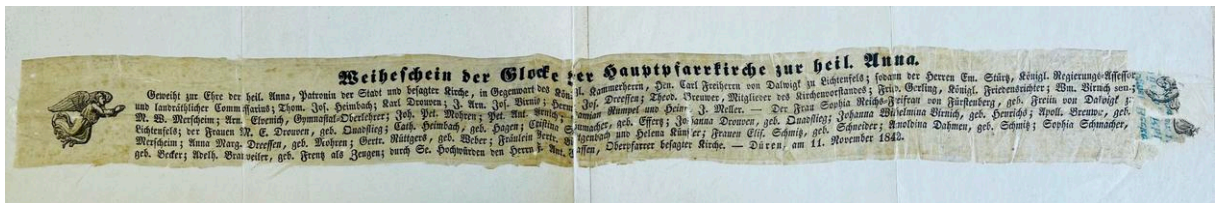 Weiheschein der Glocke der Hauptpfarrkirche zur heil. Anna.
Geweiht zur Ehre der heil. Anna, Patronin der Stadt und besagter Kirche, in Gegenwart des Königl. Kammerherrn, Hrn. Carl Freiherrn von Dalwigk zu Lichtenfels; sodann der Herren Em. Stürtz, Königl. Regierungs-Assessor
und landräthlicher Commissarius; Thom. Jos. Heimbach; Karl Drouven; J. Arn. Jos. Virnis; Herm. Jos. Dreessen; Theod. Breuwer, Mitglieder des Kirchenvorstandes; Frid. Gerling, Königl. Friedensrichter; Wm. Virnich sen.;
M. W. Merscheim; Arn. Elvenich, Gymnasial-Oberlehrer; Joh. Pet. Mohren; Pet. Ant. Damian Rümpel und Heinr. J. Meller. — Der Frau Sophia Reichs-Freifrau von Fürstenberg, geb. Freiin von Dalwigk z.
Lichtenfels; der Frauen M. E. Drouven, geb. Quadflieg; Cath. Heimbach, geb. Hagen; Christina Schumacher, geb. Effertz; Johanna Drouven, geb. Quadflieg; Johanna Wilhelmina Virnich, geb. Henrichs; Apoll. Breuwer, geb.
Merscheim; Anna Marg. Dreessen, geb. Mohren; Gertr. Rüttgers, geb. Weber; Fräulein und Helena Künster; Frauen Elis. Schmitz, geb. Schneider; Arnoldina Dahmen, geb. Schmitz; Sophia Schmacher,
geb. Gecker; Adelh. Brauweiler, geb. Frentz als Zeugen; durch Se. Hochwürden den Herrn Ant. Claffen, Oberpfarrer besagter Kirche. — Düren, am 11. November 1842.